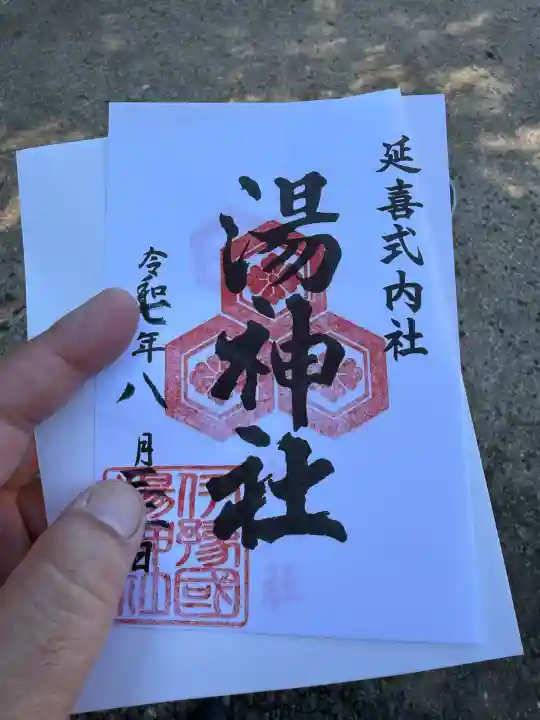 延喜式内社
湯神社
令和七年八月
日
伊豫國
湯神社